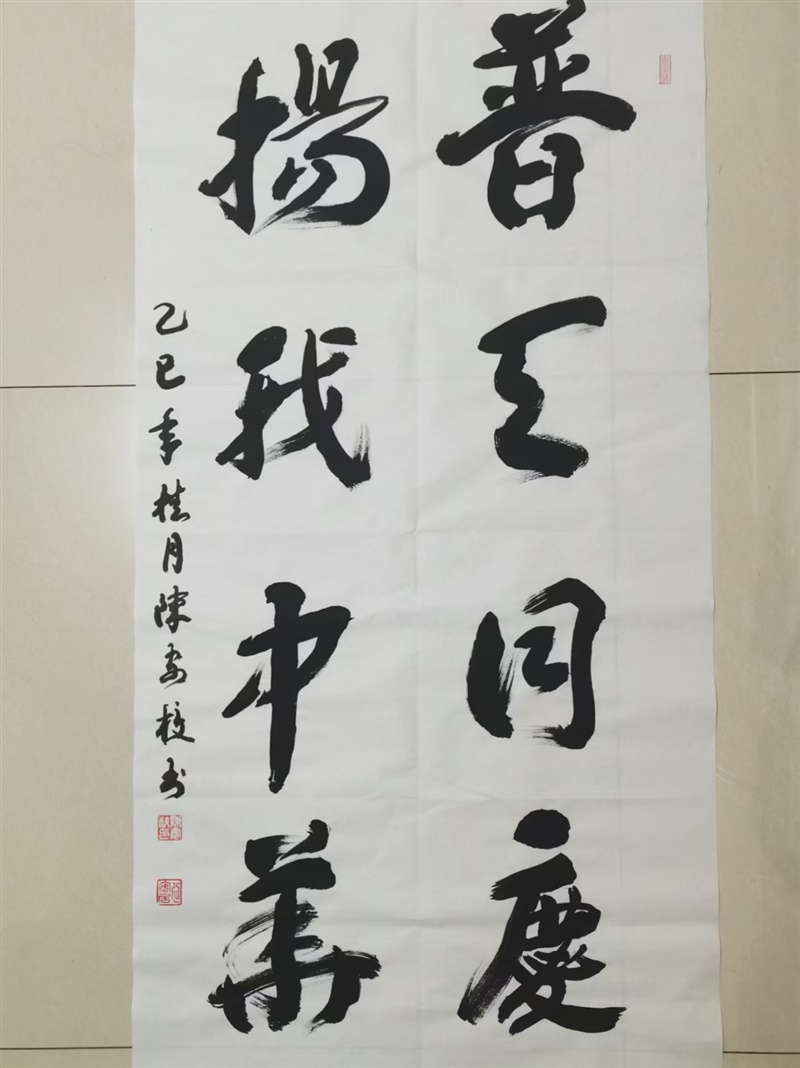 普天同慶
揚我中華
乙巳年桂月陳安校书